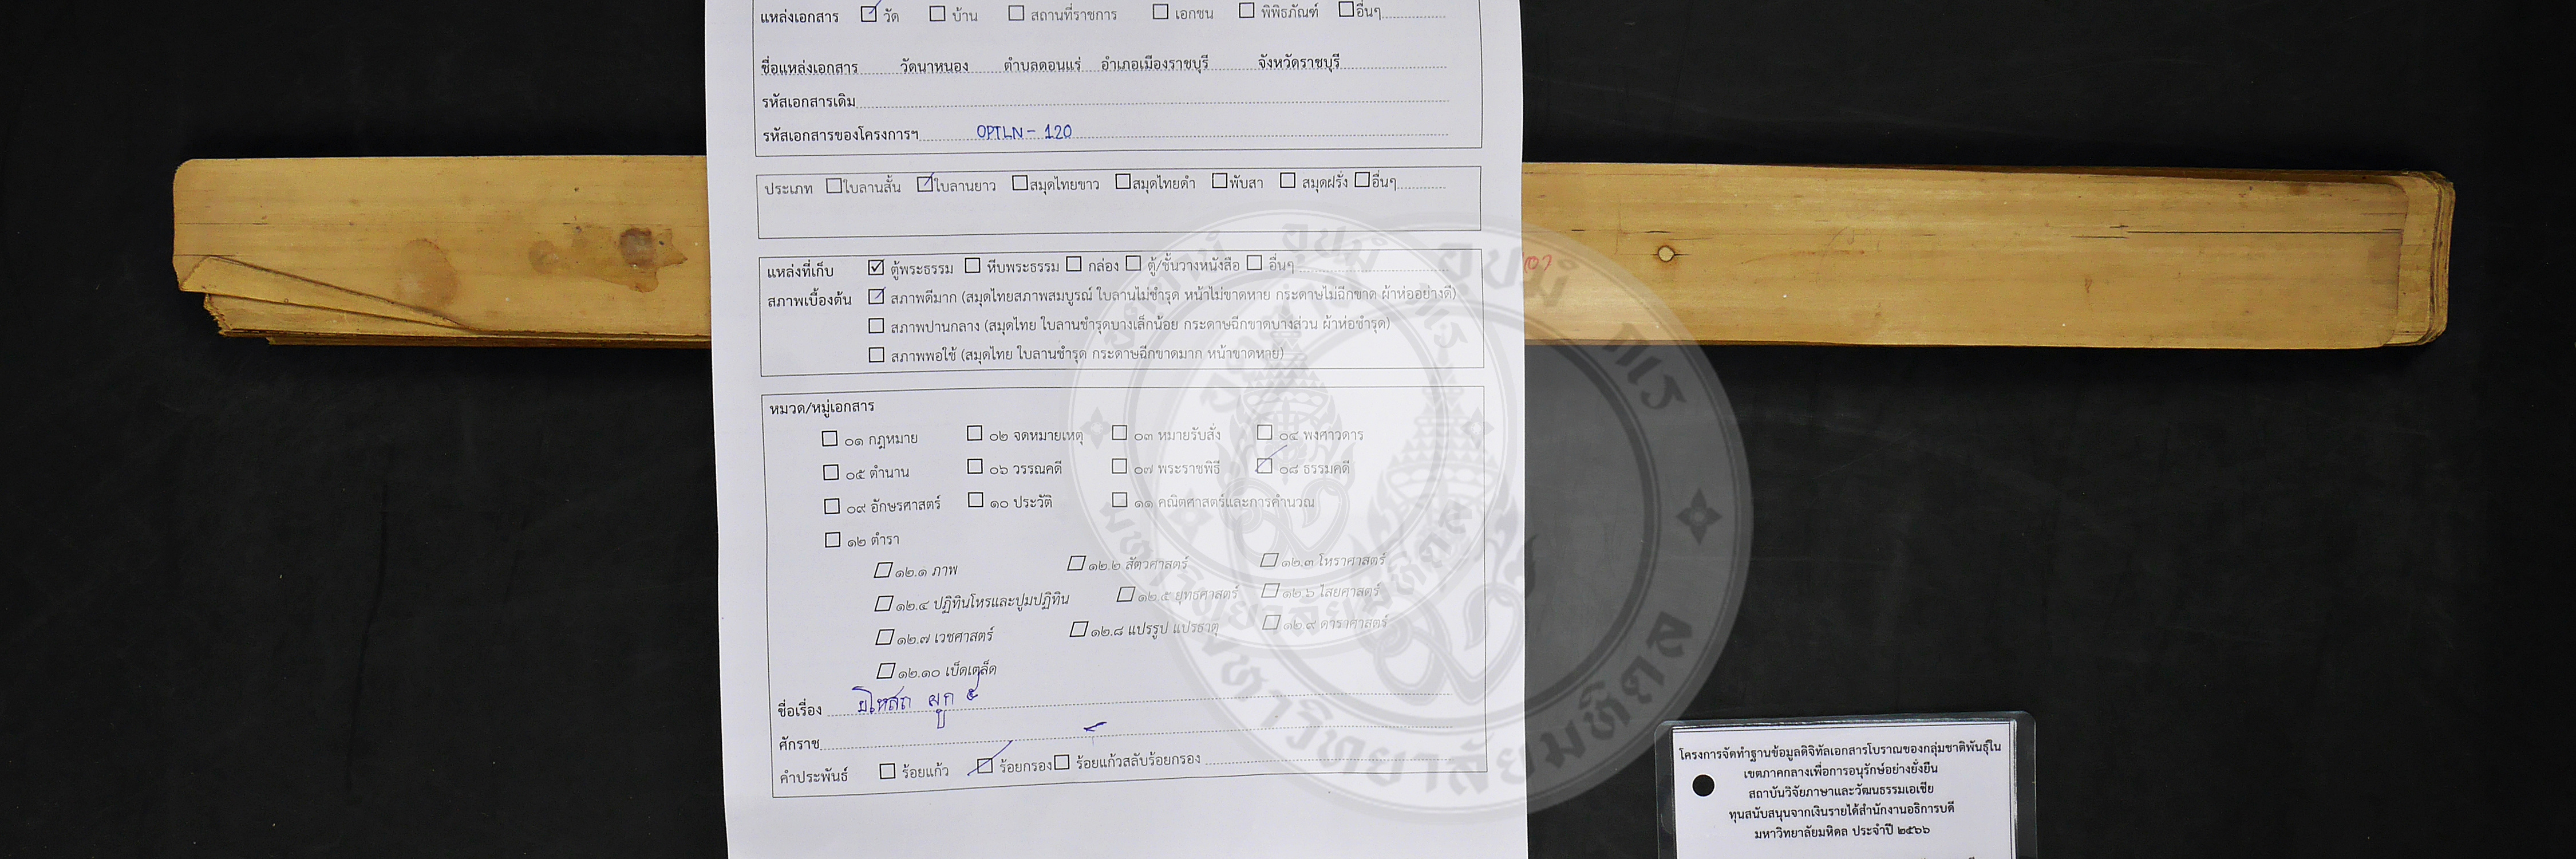 แหล่งเอกสาร ☑ วัด ☐ บ้าน ☐ สถานที่ราชการ ☐ เอกชน ☐ พิพิธภัณฑ์ ☐ อื่นๆ
ชื่อแหล่งเอกสาร วัดนาหนอง ตำบลดอนแร่ อำเภอเมืองราชบุรี จังหวัดราชบุรี
รหัสเอกสารเดิม
รหัสเอกสารของโครงการฯ OPTLN - 120
ประเภท ☐ ใบลานสั้น ☑ ใบลานยาว ☐ สมุดไทยขาว ☐ สมุดไทยดำ ☐ พับสา ☐ สมุดฝรั่ง ☐ อื่นๆ
แหล่งที่เก็บ ☑ ตู้พระธรรม ☐ หีบพระธรรม ☐ กล่อง ☐ ตู้/ชั้นวางหนังสือ ☐ อื่นๆ
สภาพเบื้องต้น ☑ สภาพดีมาก (สมุดไทยสภาพสมบูรณ์ ใบลานไม่ชำรุด หน้าไม่ขาดหาย กระดาษไม่ฉีกขาด ผ้าห่ออย่างดี)
☐ สภาพปานกลาง (สมุดไทย ใบลานชำรุดบางเล็กน้อย กระดาษฉีกขาดบางส่วน ผ้าห่อชำรุด)
☐ สภาพพอใช้ (สมุดไทย ใบลานชำรุด กระดาษฉีกขาดมาก หน้าขาดหาย)
หมวด/หมู่เอกสาร
☐ ๐๑ กฎหมาย ☐ ๐๒ จดหมายเหตุ ☐ ๐๓ หมายรับสั่ง ☐ ๐๔ พงศาวดาร
☐ ๐๕ ตำนาน ☐ ๐๖ วรรณคดี ☐ ๐๗ พระราชพิธี ☑ ๐๘ ธรรมคดี
☐ ๐๙ อักษรศาสตร์ ☐ ๑๐ ประวัติ ☐ ๑๑ คณิตศาสตร์และการคำนวณ
☐ ๑๒ ตำรา
☐ ๑๒.๑ ภาพ ☐ ๑๒.๒ สัตวศาสตร์ ☐ ๑๒.๓ โหราศาสตร์
☐ ๑๒.๔ ปฏิทินโหรและปูมปฏิทิน ☐ ๑๒.๕ ยุทธศาสตร์ ☐ ๑๒.๖ ไสยศาสตร์
☐ ๑๒.๗ เวชศาสตร์ ☐ ๑๒.๘ แปรรูป แปรธาตุ ☐ ๑๒.๙ ดาราศาสตร์
☐ ๑๒.๑๐ เบ็ดเตล็ด
ชื่อเรื่อง มโหสถ ผูก ๕
ศักราช -
คำประพันธ์ ☐ ร้อยแก้ว ☑ ร้อยกรอง ☐ ร้อยแก้วสลับร้อยกรอง
โครงการจัดทำฐานข้อมูลดิจิทัลเอกสารโบราณของกลุ่มชาติพันธุ์ใน
เขตภาคกลางเพื่อการอนุรักษ์อย่างยั่งยืน
สถาบันวิจัยภาษาและวัฒนธรรมเอเชีย
ทุนสนับสนุนจากเงินรายได้สำนักงานอธิการบดี
มหาวิทยาลัยมหิดล ประจำปี ๒๕๖๖
มหาวิทยาลัยมหิดล